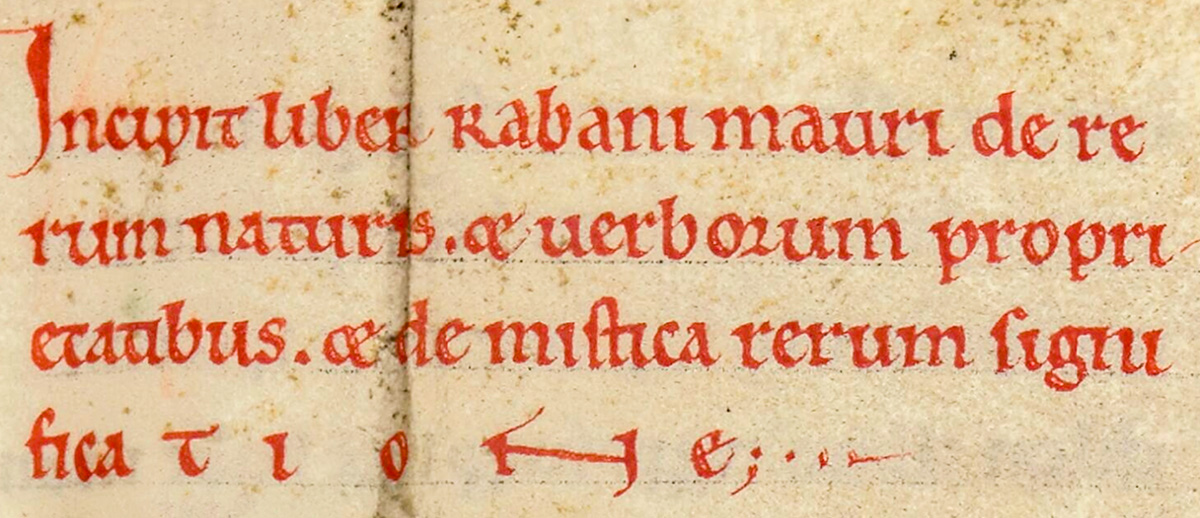 Incipit liber Rabani mauri de re
rum naturis. & uerborum propri
etatibus. & de mistica rerum signi
fica t i o n e;··-